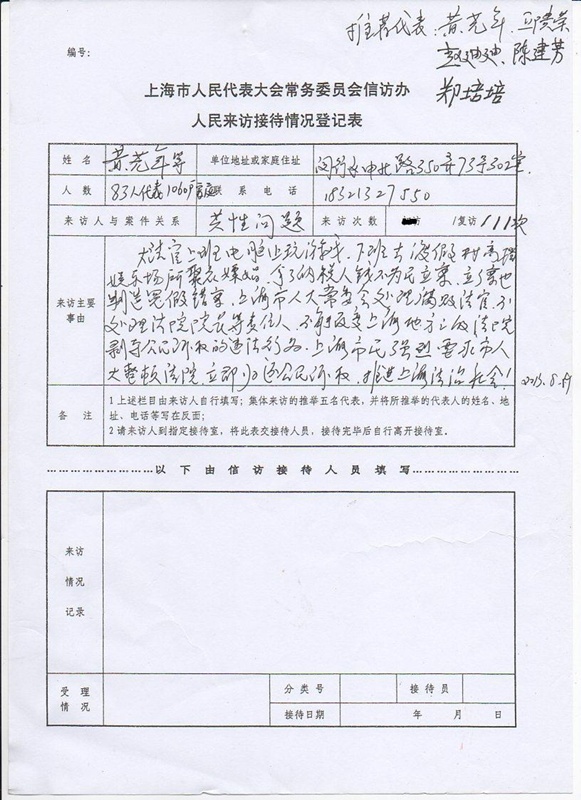 推荐代表：黄尧年、
陈建芳
郑培培
编号：
上海市人民代表大会常务委员会信访办
人民来访接待情况登记表
姓名 黄尧年等 单位地址或家庭住址 中北路350弄73号302室
人数 83人代表1060户家庭 联系电话 18321327550
来访人与案件关系 共性问题 来访次数 /复访 111次
来访主要事由
大法官上班电脑上玩游戏，下班去度假村高端
娱乐场所聚众嫖娼，拿了纳税人钱不为民立案，立案也
制造冤假错案，上海市人大常委会处理腐败法官不
处理法院院长等责任人，不能改变上海地方三级法院
剥夺公民诉权的违法行为，上海市民强烈要求市人
大整顿法院，立即归还公民诉权，推进上海法治社会！
2013.8.
备注
1 上述栏目由来访人自行填写；集体来访的推举五名代表，并将所推举的代表人的姓名、地
址、电话等写在反面；
2 请来访人到指定接待室，将此表交接待人员，接待完毕后自行离开接待室。
………………………以下由信访接待人员填写………………………
来访
情况
记录
受理情况 分类号 接待员
接待日期 年 月 日